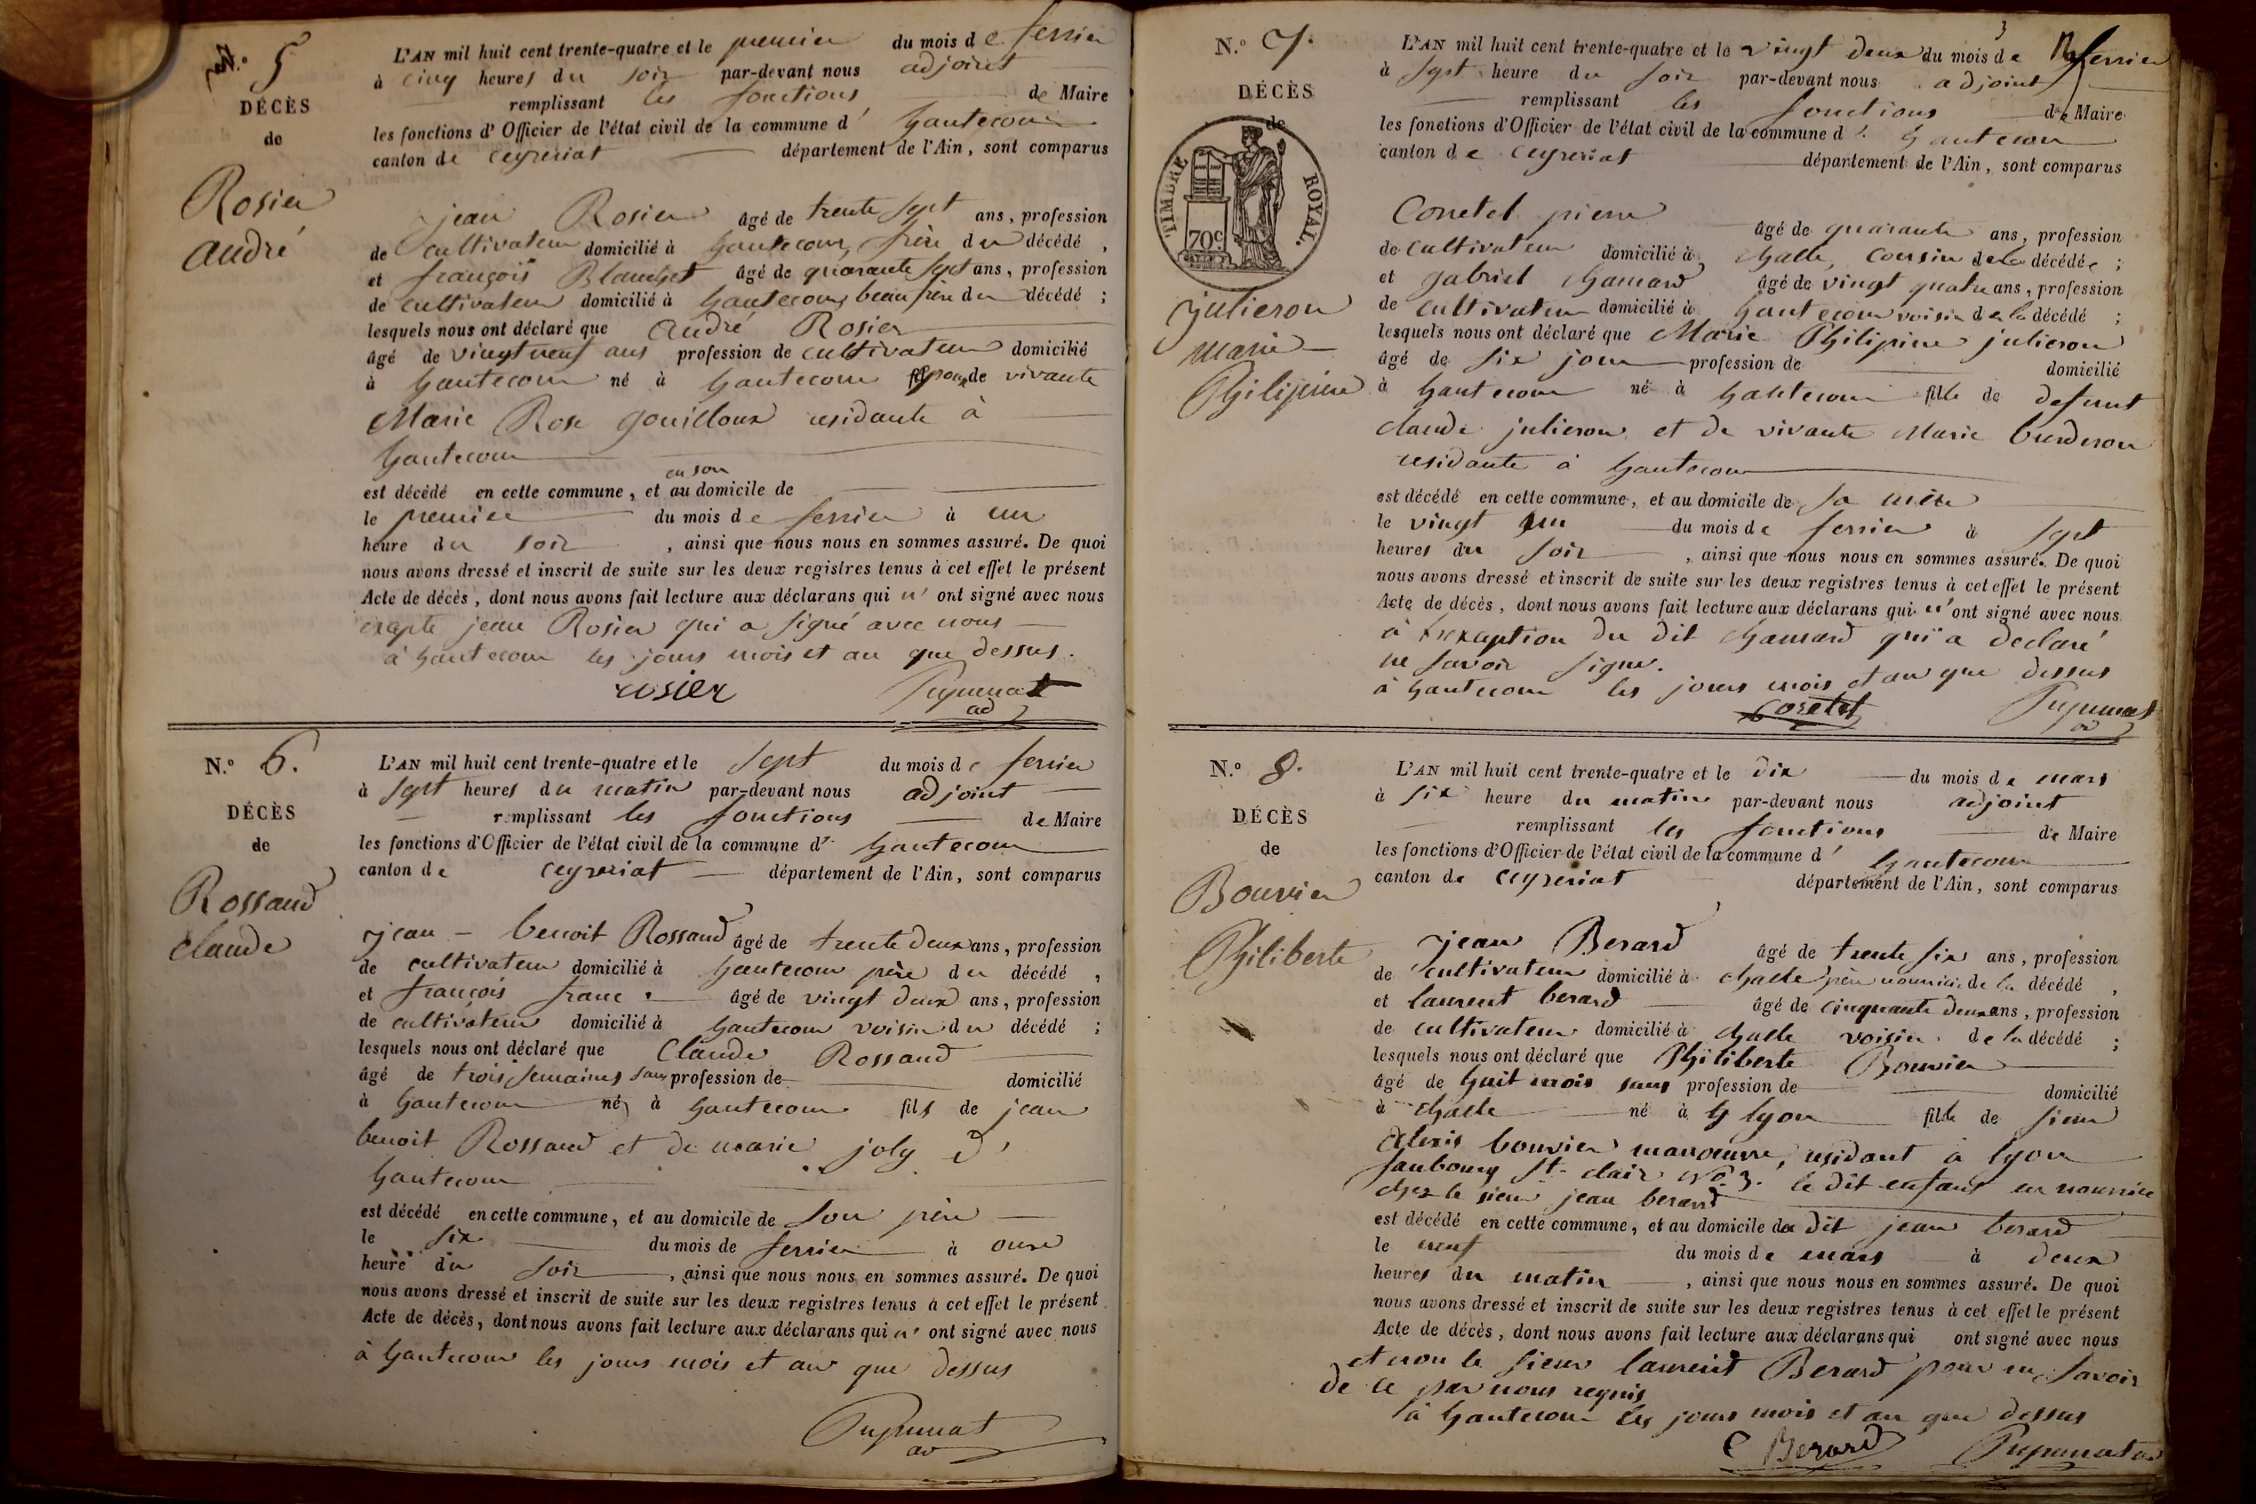 N.o 5
DÉCÈS
de
Rosier
andré
L'AN mil huit cent trente-quatre et le premier du mois de fevrier
à cinq heures du soir par-devant nous adjoint
remplissant les fonctions de Maire
les fonctions d'Officier de l'état civil de la commune d' hautecour
canton de ceyzeriat département de l'Ain, sont comparus
jean Rosier âgé de trente sept ans, profession
de cultivateur domicilié à hautecour, frère du décédé,
et françois Blanchet âgé de quarante sept ans, profession
de cultivateur domicilié à hautecour, beau frère du décédé ;
lesquels nous ont déclaré que andré Rosier
âgé de vingt neuf ans profession de cultivateur domicilié
à hautecour né à hautecour époux de vivante
Marie Rose gouilloux residante à
hautecour
en son
est décédé en cette commune, et au domicile de
le premier du mois de fevrier à une
heure du soir, ainsi que nous nous en sommes assuré. De quoi
nous avons dressé et inscrit de suite sur les deux registres tenus à cet effet le présent
Acte de décès, dont nous avons fait lecture aux déclarans qui n' ont signé avec nous
exepté jean Rosier qui a signé avec nous
à hautecour les jours mois et an que dessus.
rosier Pupunat
ad
N.o 6.
DÉCÈS
de
Rossand
claude
L'AN mil huit cent trente-quatre et le sept du mois de fevrier
à sept heures du matin par-devant nous adjoint
remplissant les fonctions de Maire
les fonctions d'Officier de l'état civil de la commune d' hautecour
canton de ceyzeriat département de l'Ain, sont comparus
jean - benoit Rossand âgé de trente deux ans, profession
de cultivateur domicilié à hautecour père du décédé,
et françois franc âgé de vingt deux ans, profession
de cultivateur domicilié à hautecour voisin du décédé ;
lesquels nous ont déclaré que Claude Rossand
âgé de trois semaines sans profession de domicilié
à hautecour né à hautecour fils de jean
benoit Rossand et de marie joly d'
hautecour
est décédé en cette commune, et au domicile de son père
le six du mois de fevrier à onze
heure du soir, ainsi que nous nous en sommes assuré. De quoi
nous avons dressé et inscrit de suite sur les deux registres tenus à cet effet le présent
Acte de décès, dont nous avons fait lecture aux déclarans qui n' ont signé avec nous
à hautecour les jours mois et an que dessus
Pupunat
ad
N.o 7.
DÉCÈS
de
TIMBRE ROYAL.
70c
julieron
marie
Philipine
L'AN mil huit cent trente-quatre et le vingt deux du mois de fevrier
à sept heure du soir par-devant nous adjoint
remplissant les fonctions de Maire
les fonctions d'Officier de l'état civil de la commune d' hautecour
canton de ceyzeriat département de l'Ain, sont comparus
Corretel pierre âgé de quarante ans, profession
de cultivateur domicilié à challe, cousin de la décédée ;
et gabriel chanard âgé de vingt quatre ans, profession
de cultivateur domicilié à hautecour voisin de la décédé ;
lesquels nous ont déclaré que Marie Philipine julieron
âgé de six jour profession de domicilié
à hautecour né à hautecour fille de defunt
claude julieron et de vivante Marie burderon
residante à hautecour
est décédé en cette commune, et au domicile de sa mère
le vingt un du mois de fevrier à sept
heures du soir, ainsi que nous nous en sommes assuré. De quoi
nous avons dressé et inscrit de suite sur les deux registres tenus à cet effet le présent
Acte de décès, dont nous avons fait lecture aux déclarans qui n' ont signé avec nous
à l'exception du dit chanard qui a declaré
ne savoir signer.
à hautecour les jours mois et an que dessus
Coretel Pupunat
ad
N.o 8.
DÉCÈS
de
Bouvier
Philiberte
L'AN mil huit cent trente-quatre et le dix du mois de mars
à six heure du matin par-devant nous adjoint
remplissant les fonctions de Maire
les fonctions d'Officier de l'état civil de la commune d' hautecour
canton de ceyzeriat département de l'Ain, sont comparus
jean Berard âgé de trente six ans, profession
de cultivateur domicilié à challe père nouricié de la décédé,
et laurent berard âgé de cinquante deux ans, profession
de cultivateur domicilié à challe voisin de la décédé ;
lesquels nous ont déclaré que Philiberte Bouvier
âgé de huit mois sans profession de domicilié
à challe né à lyon fille de sieur
alexis bouvier manoeuvre, residant à lyon
faubourg St clair No 3. le dit enfant en nourrice
chez le sieur jean berard
est décédé en cette commune, et au domicile du dit jean berard
le neuf du mois de mars à deux
heures du matin, ainsi que nous nous en sommes assuré. De quoi
nous avons dressé et inscrit de suite sur les deux registres tenus à cet effet le présent
Acte de décès, dont nous avons fait lecture aux déclarans qui ont signé avec nous
et non le sieur laurent Berard pour ne savoir
de ce par nous requis
à hautecour les jours mois et an que dessus
Berard Pupunat ad